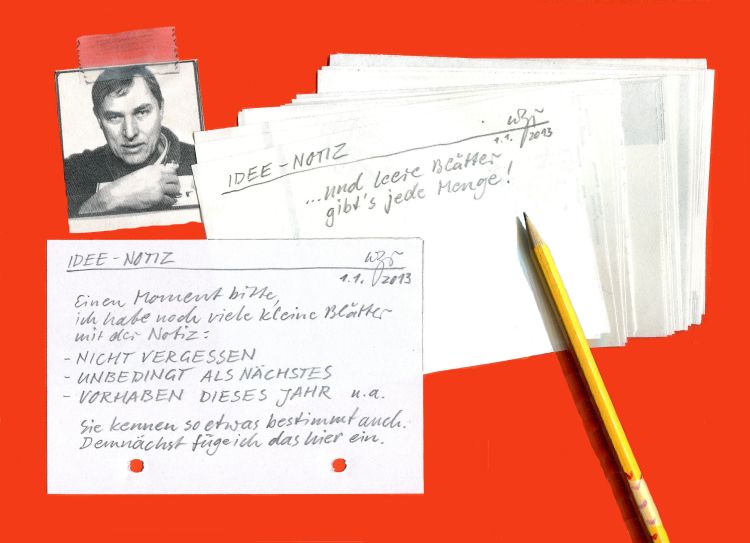 IDEE-NOTIZ
1.1. 2013
...und leere Blätter
gibt's jede Menge!
IDEE-NOTIZ
1.1. 2013
Einen Moment bitte,
ich habe noch viele kleine Blätter
mit der Notiz:
- NICHT VERGESSEN
- UNBEDINGT ALS NÄCHSTES
- VORHABEN DIESES JAHR u.a.
Sie kennen so etwas bestimmt auch.
Demnächst füge ich das hier ein.